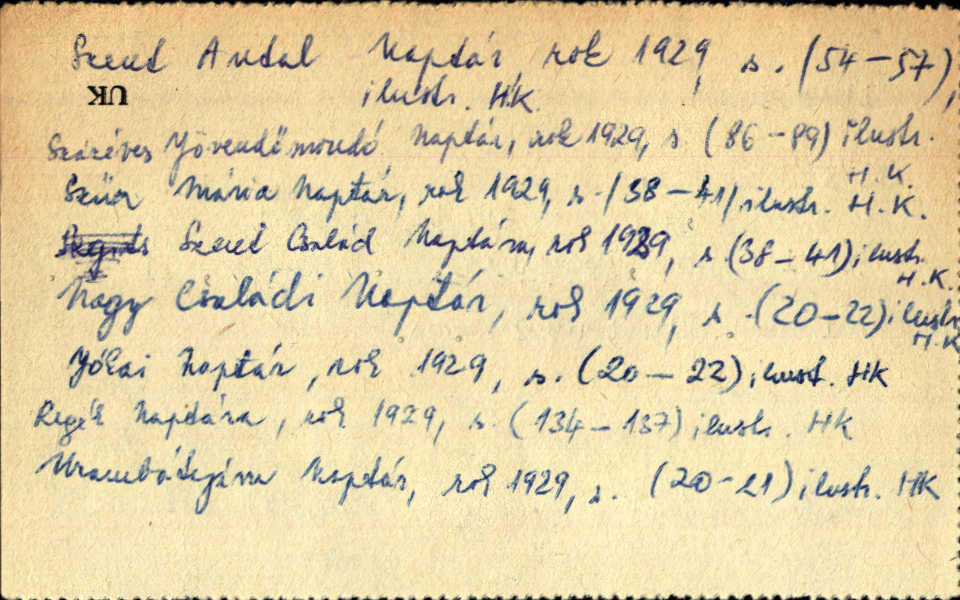 Szent Antal Naptár rok 1929, s. (54-57),
UK
ilustr. HK.
Százéves Jövendőmondó Naptár, rok 1929, s (86-89) ilustr. H.K.
Szűz Mária Naptár, rok 1929, s. /38-41/ ilustr. H.K.
Szent Család Naptára, rok 1929, s (38-41) ilustr. H.K.
Nagy Családi Naptár, rok 1929, s. (20-22) ilustr. H.K.
Jókai Naptár, rok 1929, s. (20-22) ilustr. HK
Regék Naptára, rok 1929, s. (134-137) ilustr. HK
Naptár, rok 1929, s. (20-21) ilustr. HK